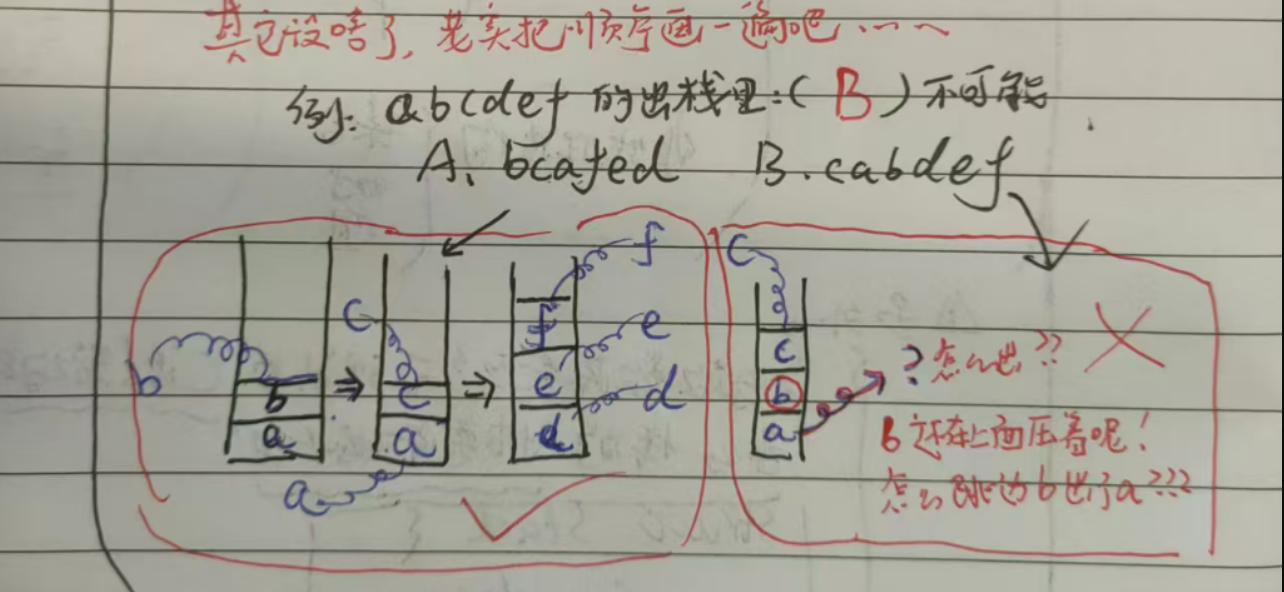 其它没啥了, 老实把顺序画一遍吧……
例: abcdef 的出栈里:( B )不可能.
A. bcafed B. cabdef
b b a c c a a f e d f e d
c c b a ? 怎么出??
b还在上面压着呢!
怎么跳过b出了a???